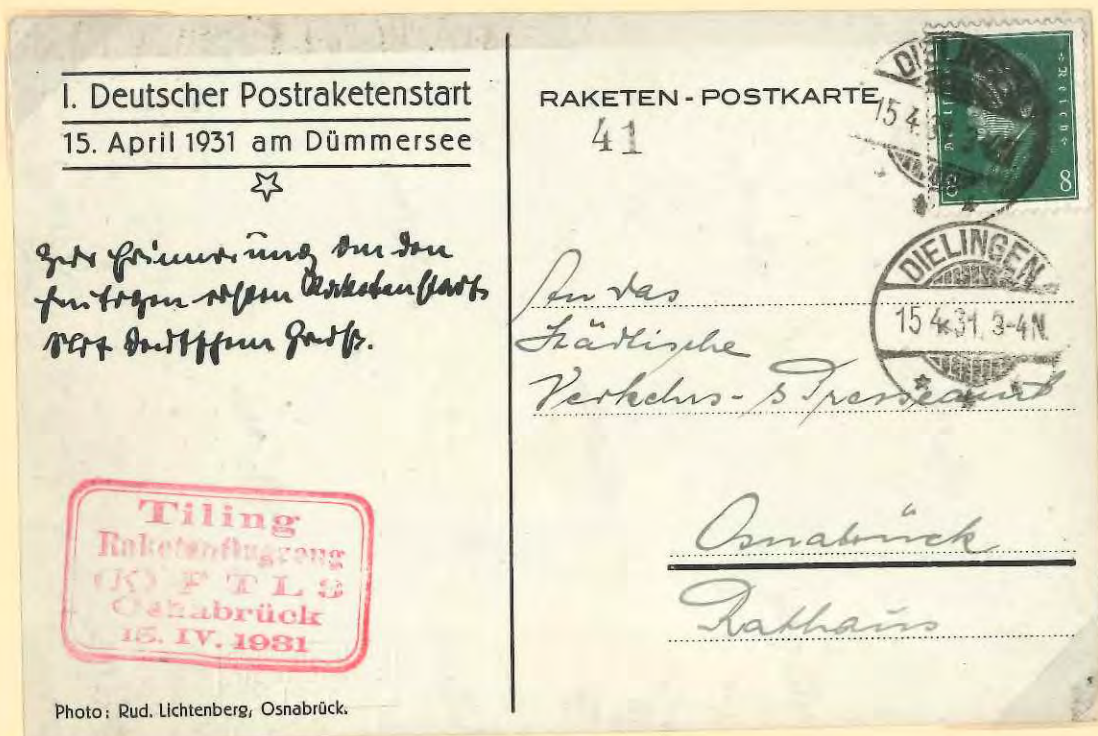 I. Deutscher Postraketenstart
15. April 1931 am Dümmersee
Zur Erinnerung an den
heutigen ersten Raketenstart
Mit Deutschem Gruß.
Tiling
Raketenflugzeug
Osnabrück
15. IV. 1931
Photo: Rud. Lichtenberg, Osnabrück.
RAKETEN-POSTKARTE
41
DIELINGEN
15.4.31. 3-4N.
Reich
8
8
DIELINGEN
15.4.31. 3-4N.
An das
Städtische
Verkehrs- & Presseamt
Osnabrück
Rathaus